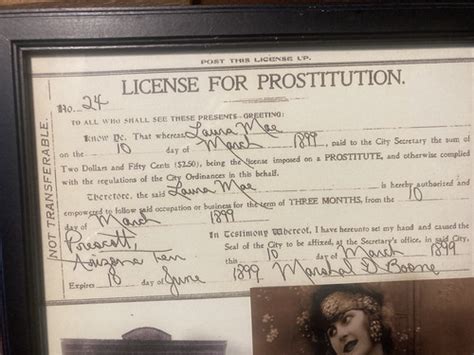 POST THIS LICENSE UP.
LICENSE FOR PROSTITUTION.
No. 24
TO ALL WHO SHALL SEE THESE PRESENTS—GREETING:
Know Ye, That whereas Laura Mae
on the 10 day of March 1899, paid to the City Secretary the sum of
Two Dollars and Fifty Cents ($2.50), being the license imposed on a PROSTITUTE, and otherwise complied
with the regulations of the City Ordinances in this behalf.
Therefore, the said Laura Mae is hereby authorized and
empowered to follow said occupation or business for the term of THREE MONTHS, from the 10
day of March 1899
Prescott, In Testimony Whereof, I have hereunto set my hand and caused the
Arizona Terr Seal of City to be affixed, at the Secretary's office, in said City,
this 10 day of March 1899
Expires 10 day of June 1899 Marshal G Boone
NOT TRANSFERABLE.